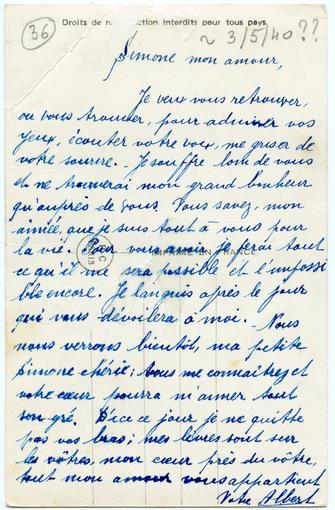 36
Droits de reproduction interdits pour tous pays.
~ 3/5/40 ??
Simone mon amour,
Je veux vous retrouver,
où vous trouver, pour admirer vos
yeux, écouter votre voix, me griser de
votre sourire. Je souffre loin de vous
et ne trouverai mon grand bonheur
qu'auprès de vous. Vous savez, mon
aimée, que je suis tout à vous pour
la vie. Pour vous avoir je ferai tout
IMPRIMÉ EN FRANCE
ce qu'il me sera possible et l'impossi
ble encore. Je languis après le jour
qui vous dévoilera à moi. Nous
nous verrons bientôt, ma petite
Simone chérie; vous me connaîtrez et
votre cœur pourra m'aimer tout
son gré. D'ici ce jour je ne quitte
pas vos bras; mes lèvres sont sur
les vôtres, mon cœur près du vôtre,
tout mon amour vous appartient
Votre Albert